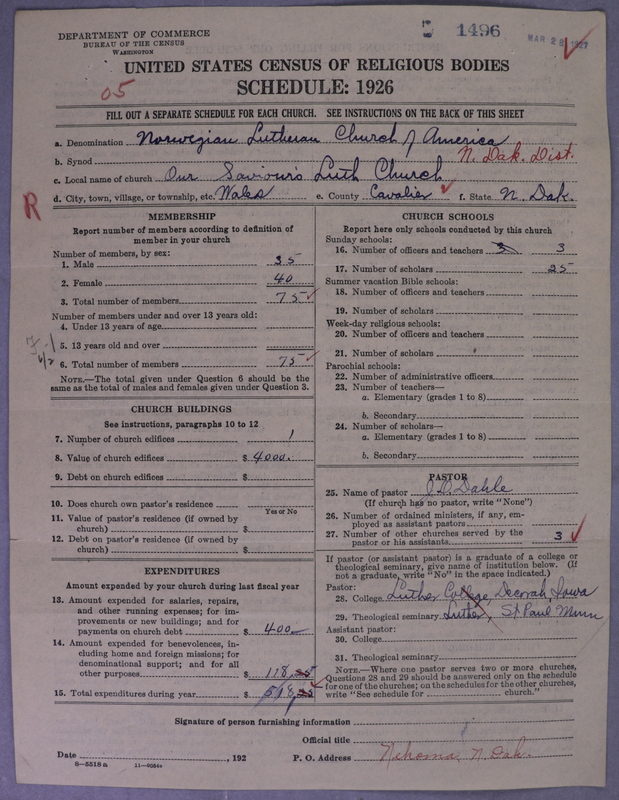 DEPARTMENT OF COMMERCE
BUREAU OF THE CENSUS
WASHINGTON
1496
MAR 28 1927
UNITED STATES CENSUS OF RELIGIOUS BODIES
SCHEDULE: 1926
05
FILL OUT A SEPARATE SCHEDULE FOR EACH CHURCH. SEE INSTRUCTIONS ON THE BACK OF THIS SHEET
a. Denomination Norwegian Lutheran Church of America
b. Synod N. Dak. Dist.
c. Local name of church Our Saviour's Luth Church
d. City, town, village, or township, etc. Wales e. County Cavalier f. State N. Dak.
R
MEMBERSHIP
Report number of members according to definition of
member in your church
Number of members, by sex:
1. Male 35
2. Female 40
3. Total number of members 75
Number of members under and over 13 years old:
4. Under 13 years of age
5. 13 years old and over
6. Total number of members 75
NOTE.—The total given under Question 6 should be
same as the total of males and females given under Question 3.
CHURCH BUILDINGS
See instructions, paragraphs 10 to 12
7. Number of church edifices 1
8. Value of church edifices $ 4000.
9. Debt on church edifices $
10. Does church own pastor's residence
Yes or No
11. Value of pastor's residence (if owned by
church) $
12. Debt on pastor's residence (if owned by
church) $
EXPENDITURES
Amount expended by your church during last fiscal year
13. Amount expended for salaries, repairs,
and other running expenses; for im-
provements or new buildings; and for
payments on church debt $ 400
14. Amount expended for benevolences, in-
cluding home and foreign missions; for
denominational support; and for all
other purposes $ 118.25
15. Total expenditures during year $ 518.25
CHURCH SCHOOLS
Report here only schools conducted by this church
Sunday schools:
16. Number of officers and teachers 3 3
17. Number of scholars 25
Summer vacation Bible schools:
18. Number of officers and teachers
19. Number of scholars
Week-day religious schools:
20. Number of officers and teachers
21. Number of scholars
Parochial schools:
22. Number of administrative officers
23. Number of teachers—
a. Elementary (grades 1 to 8)
b. Secondary
24. Number of scholars—
a. Elementary (grades 1 to 8)
b. Secondary
PASTOR
25. Name of pastor J. D. Dahle
(If church has no pastor, write "None")
26. Number of ordained ministers, if any, em-
ployed as assistant pastors
27. Number of other churches served by the
pastor or his assistants 3
If pastor (or assistant pastor) is a graduate of a college or
theological seminary, give name of institution below. (If
not a graduate, write "No" in the space indicated.)
Pastor:
28. College Luther College, Decorah, Iowa
29. Theological seminary Luther, St Paul Minn
Assistant pastor:
30. College
31. Theological seminary
NOTE.—Where one pastor serves two or more churches,
Questions 28 and 29 should be answered only on the schedule
for one of the churches; on the schedules for the other churches,
write "See schedule for church."
Signature of person furnishing information
Official title
Date , 192 P. O. Address Nekoma, N. Dak.
8—5518 a 11—9034c